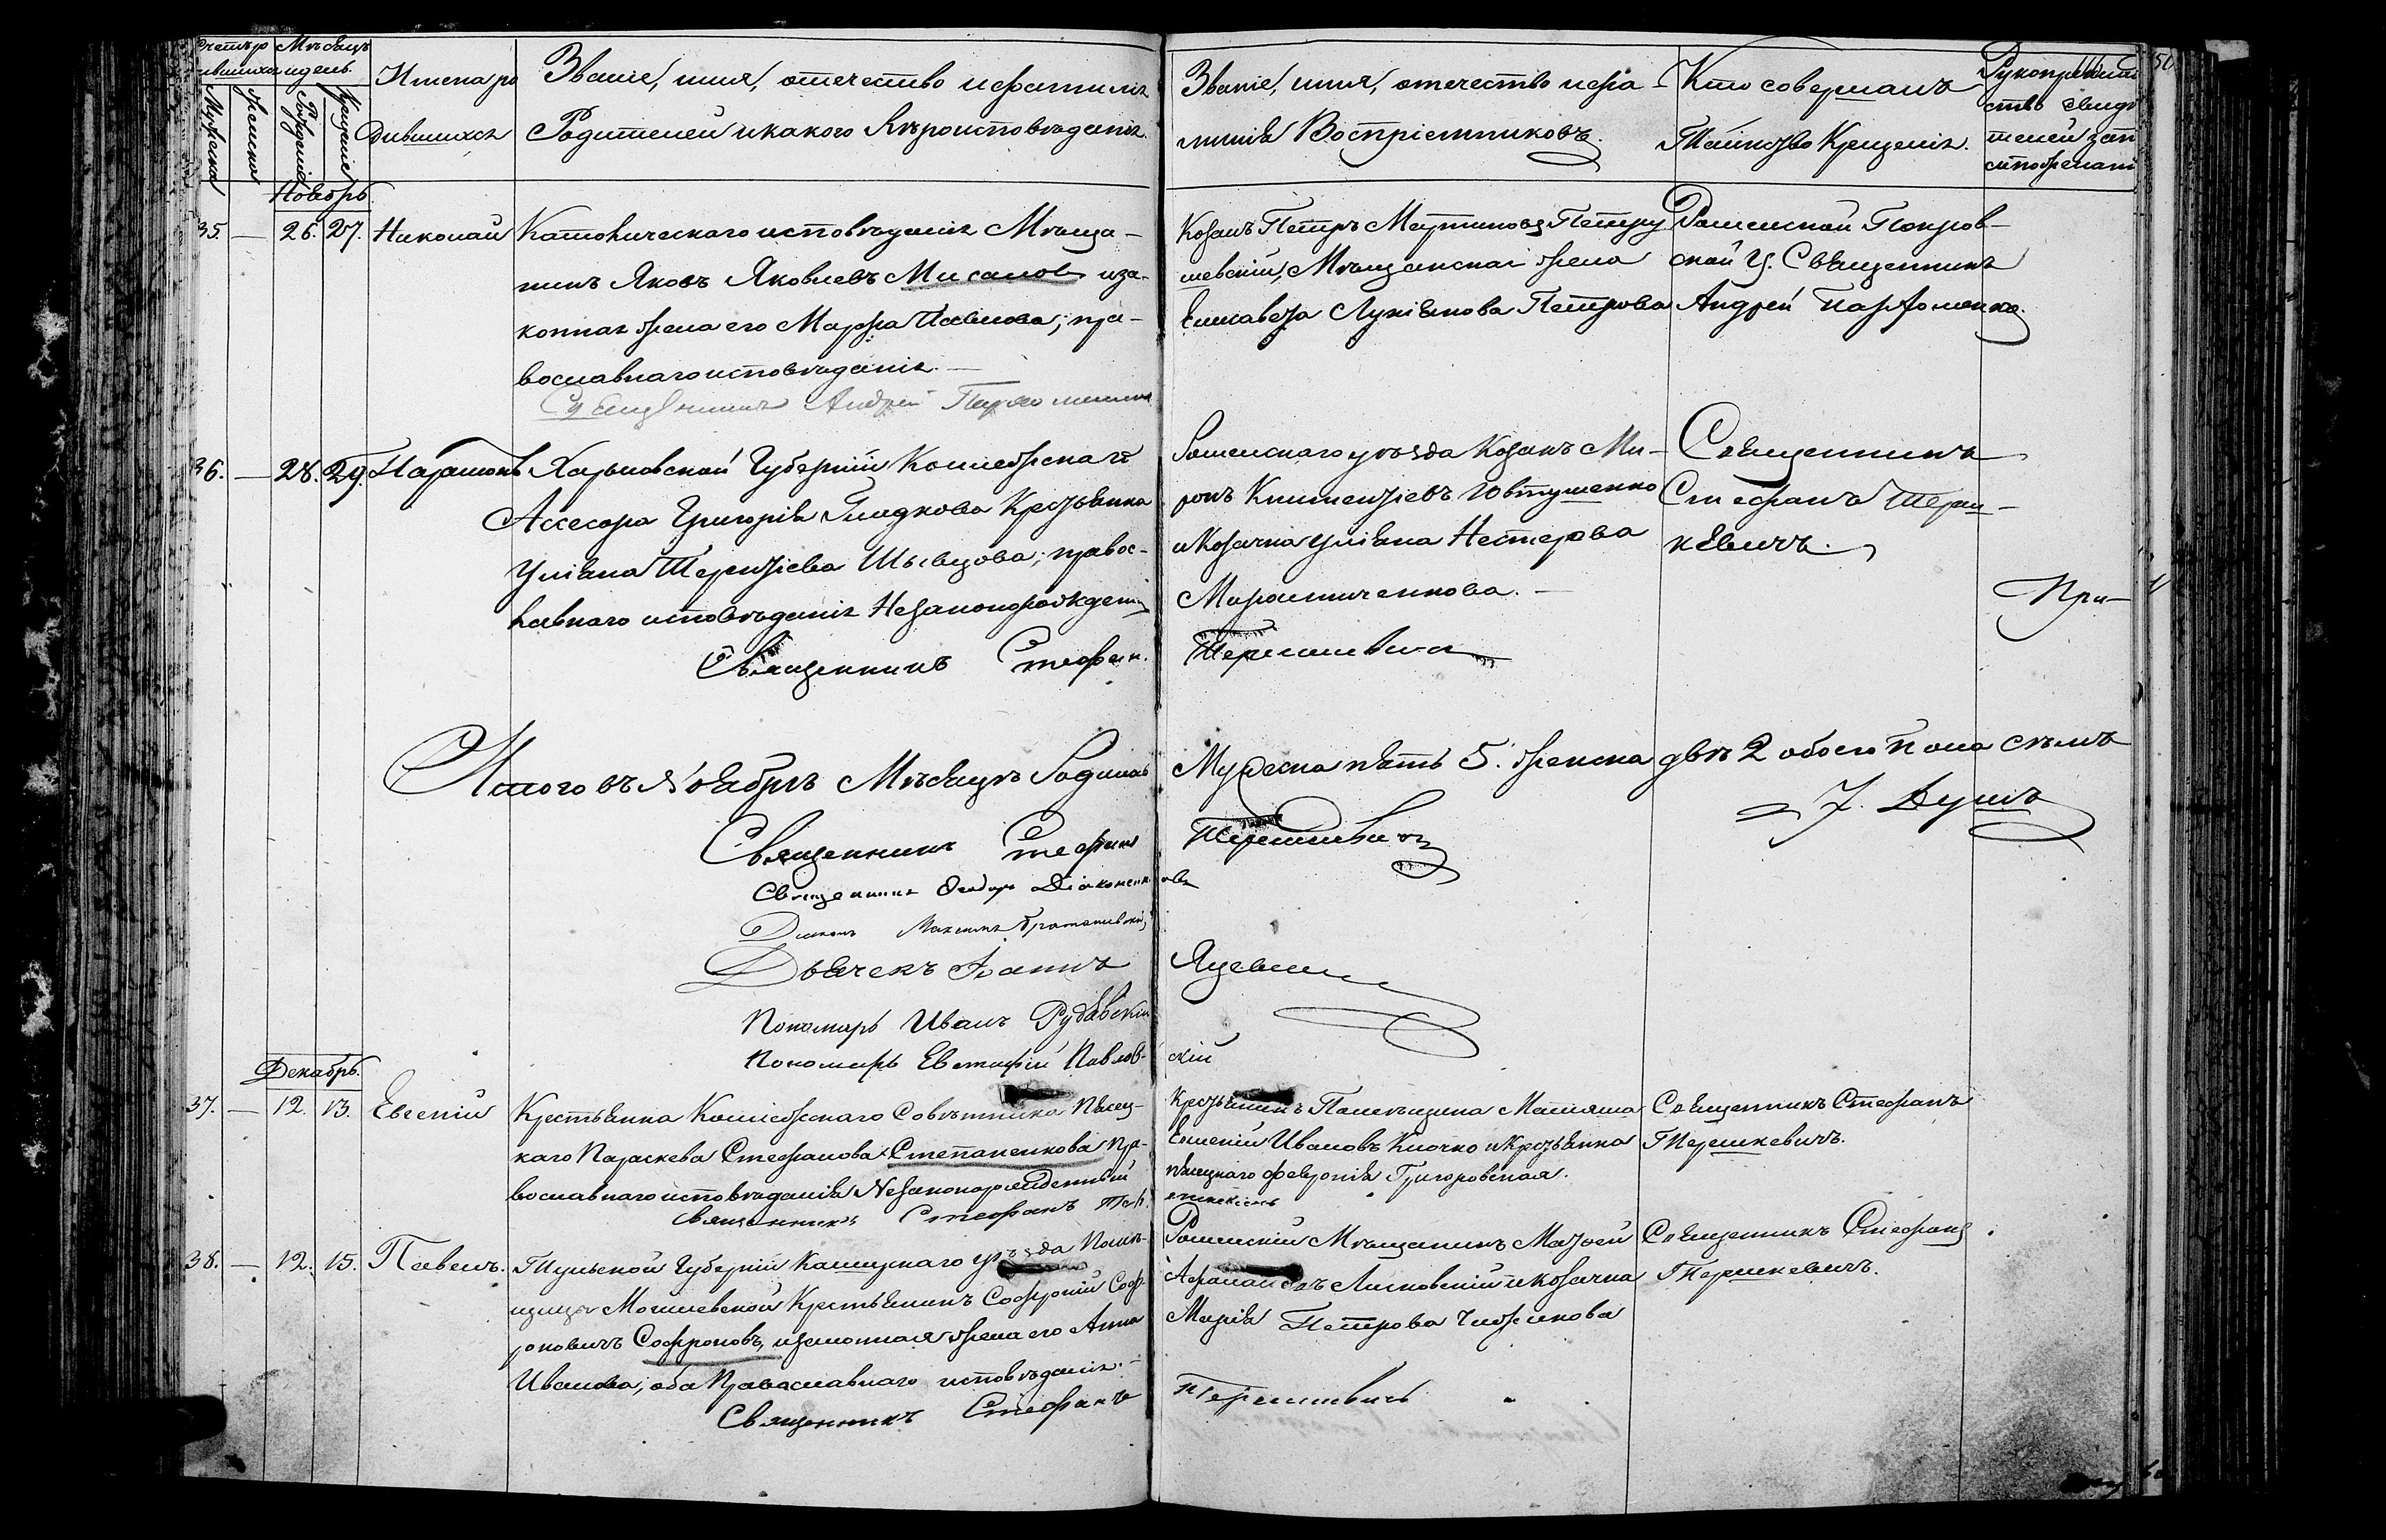 Счетъ ро Мѣсяцъ
дившихся и день.
Мужеска Женска Рожденія Крещенія
Имена ро
дившихся
Званіе, имя, отчество и фамилія
Родителей и какого Вѣроисповѣданія.
Званіе, имя, отчество и фа-
милія Воспріемниковъ.
Кто совершалъ
Таинство Крещенія.
Рукоприклад
ство свидѣ
телей зап
си по желанію
Ноябрь.
35. — 26. 27. Николай
Католическаго исповѣданія Мѣща-
нинъ Яковъ Яковлевъ Мисаловъ и за-
конная жена его Марфа Павлова, пра-
вославнаго исповѣданія. —
Священникъ Андрей Пархоменко
Козакъ Петръ Мартиновъ Петру
шевскій, Мѣщанская жена
Елисавета Лукіянова Петрова
Роменской Покров-
ской Ц. Священникъ
Андрей Пархоменко.
36. — 28. 29. Парамонъ
Харьковской Губерніи Коллежскаго
Ассесора Григорія Гладкова Крестьянка
Уліана Терентіева Швецова, правос-
лавнаго исповѣданія Незаконорожден
Священникъ Стефан.
Роменскаго уѣзда Козакъ Ми-
ронъ Климентіевъ Юстушенко
и Козачка Уліана Нестерова
Мирошниченкова. —
Терешкевичъ
Священникъ
Стефанъ Терш-
кевичъ.
При-
Итого въ Ноябрѣ Мѣсяцѣ Родилось
Мужеска пять 5. женска двѣ 2 обоего пола семь
7. Душъ
Священникъ Стефанъ
Терешкевичъ
Священникъ Федоръ Діаконенк
овъ
Діаконъ Максимъ
Дьячекъ Іоаннъ
Яцевичъ
Пономарь Иванъ Рубавскій
Пономарь Евстафій Павлов-
скій
Декабрь.
37. — 12. 13. Евгеній
Крестьянка Коллежскаго Совѣтника Пѣсец-
каго Параскева Стефанова Степаненкова пра-
вославнаго исповѣданія Незаконорожденный
Священникъ Стефанъ Тер.
Крестьянинъ Помѣщика Маляма
Евгеній Ивановъ Клочко и Крестьянка
пѣсецкаго Февронія Григоровская.
ешкевичъ
Священникъ Стефанъ
Терешкевичъ.
38. — 12. 15. Павелъ.
Тульской Губерніи Каширскаго уѣзда Помѣ-
щицы Могилевской Крестьянинъ Софроній Соф-
роновичъ Софроновъ, и законная жена его Анна
Иванова, оба Православнаго исповѣданія. —
Священникъ Стефанъ
Роменскій Мѣщанинъ Матвей
Афанасіевъ Лисковскій и козачка
Марія Петрова Чижикова
Терешкевичъ
Священникъ Стефанъ
Терешкевичъ.